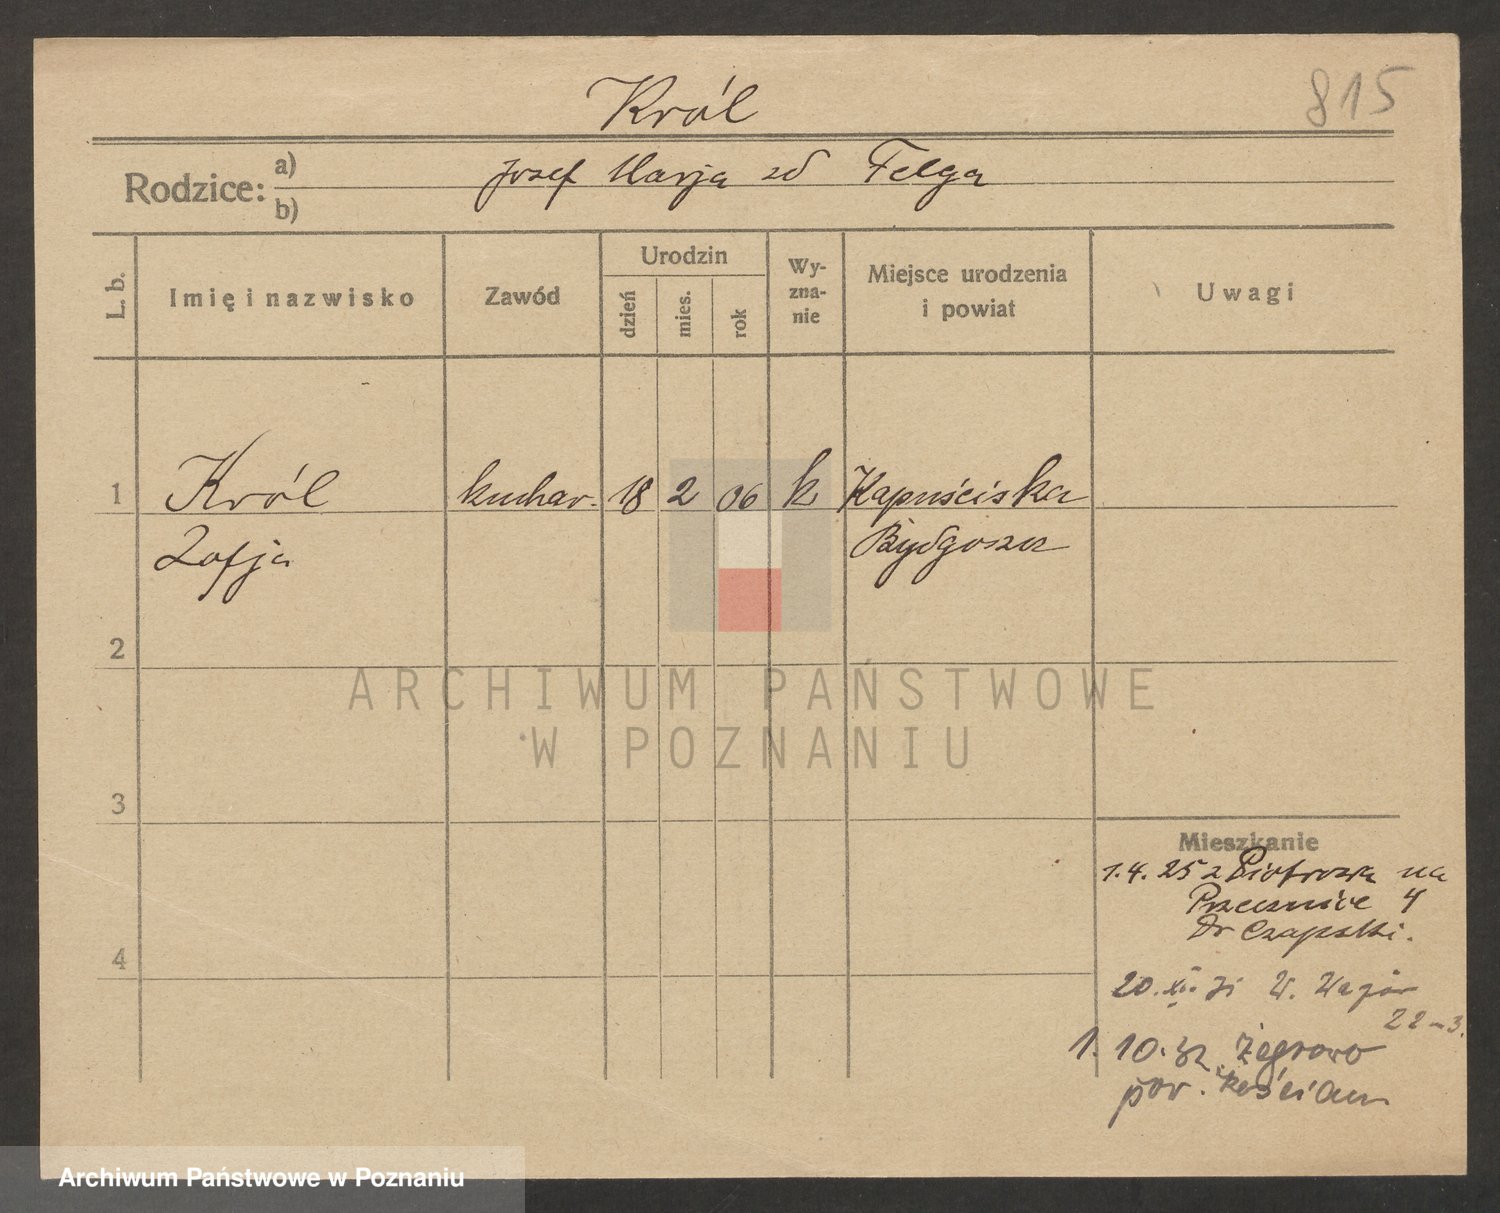 Król
815
Rodzice: a)
b)
Józef Marja zd Felga
L. b.
Imię i nazwisko
Zawód
Urodzin
dzień
mies.
rok
Wy-
zna-
nie
Miejsce urodzenia
i powiat
Uwagi
1
Król
kuchar.
18
2
06
k
Kapuściska
Zofja
Bydgoszcz
2
3
4
Mieszkanie
1.4.25 z Piotrowa na
Przecznice 4
Dr Czapski.
20. XII. 31 W.
22 - 3.
1. 10. 32 Żegrowo
pow. Kościan
ARCHIWUM PAŃSTWOWE
W POZNANIU
Archiwum Państwowe w Poznaniu